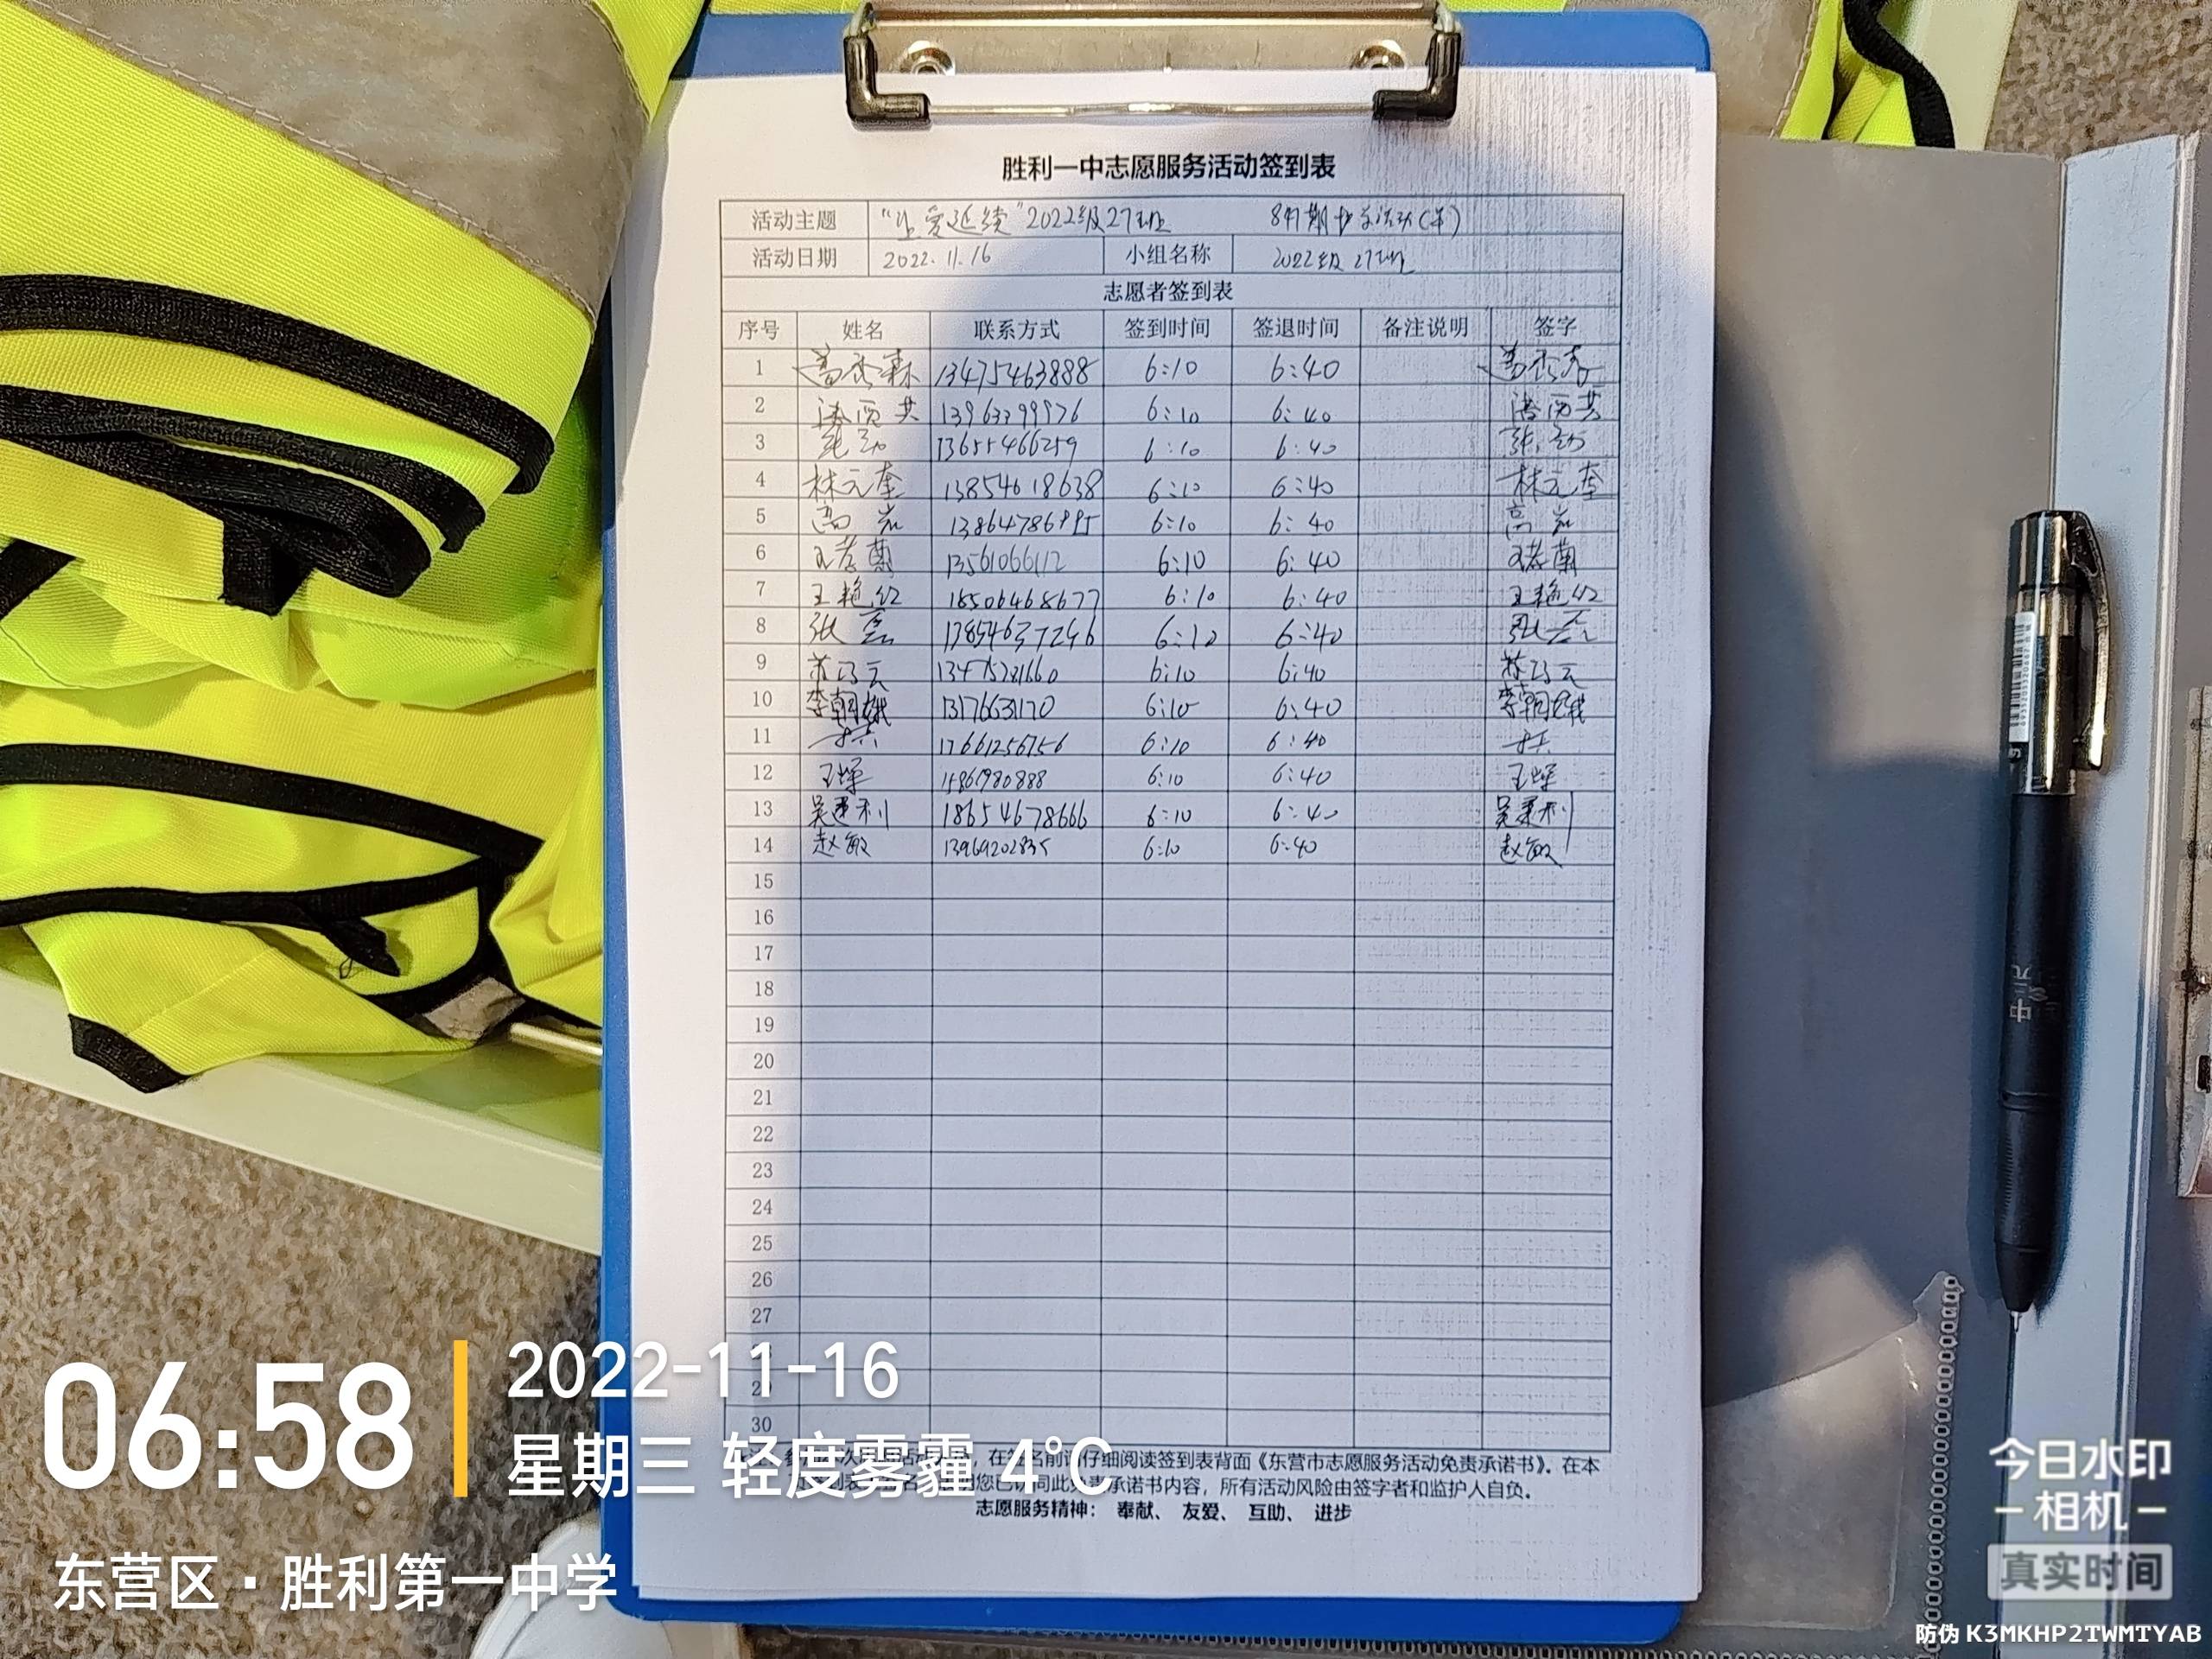 胜利一中志愿服务活动签到表
活动主题 "让爱延续"2022级27班
活动日期 2022.11.16 小组名称 2022级27班
志愿者签到表
序号 姓名 联系方式 签到时间 签退时间 备注说明 签字
1 13475463888 6:10 6:40
2 6:10 6:40
3 13655466259 6:10 6:40
4 林元奎 13854618638 6:10 6:40 林元奎
5 高岩 6:10 6:40 高岩
6 王孝兰 13561066112 6:10 6:40 王孝兰
7 王艳红 18506468677 6:10 6:40 王艳红
8 张磊 6:10 6:40 张磊
9 6:10 6:40
10 李朝娥 13176631170 6:10 6:40 李朝娥
11 17661256756 6:10 6:40
12 王辉 6:10 6:40 王辉
13 18654678666 6:10 6:40
14 赵敏 13969202835 6:10 6:40 赵敏
15
16
17
18
19
20
21
22
23
24
25
26
27
29
30
在签名前请仔细阅读签到表背面《东营市志愿服务活动免责承诺书》。在本
您已认同此免责承诺书内容，所有活动风险由签字者和监护人自负。
志愿服务精神： 奉献、 友爱、 互助、 进步
06:58
2022-11-16
星期三 轻度雾霾 4℃
东营区·胜利第一中学
今日水印
相机
真实时间
防伪 K3MKHP2TWMTYAB